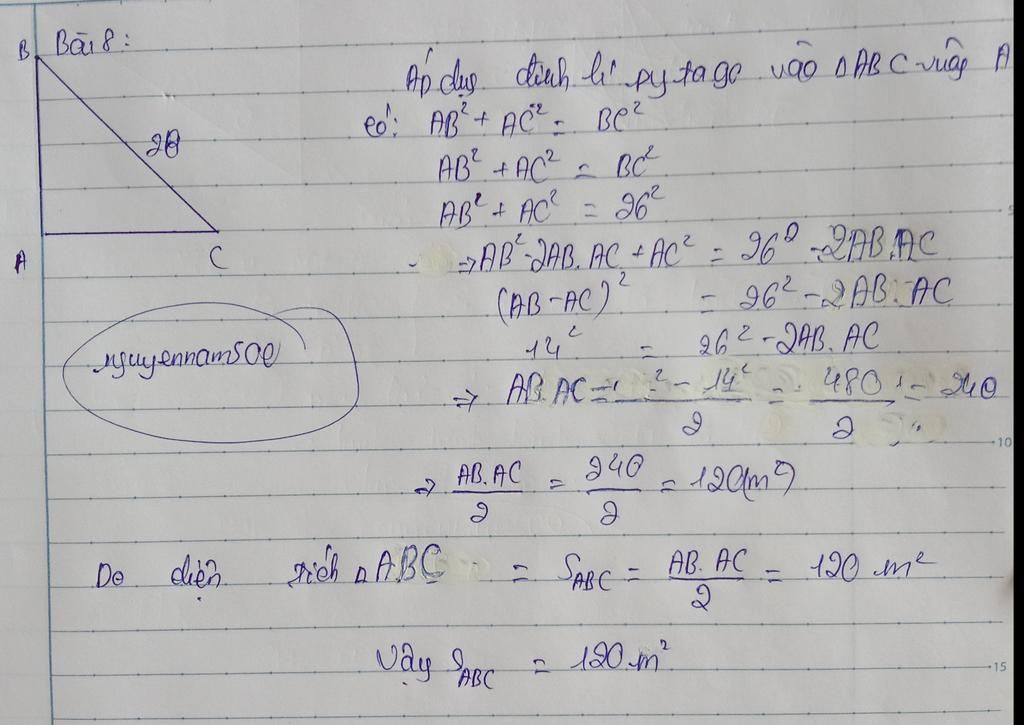 Bài 8:
B
Áp dụng định lí pytago vào ΔABC vuông A
có: AB² + AC² = BC²
AB² + AC² = BC²
AB² + AC² = 26²
A
C
⇒ AB² - 2AB.AC + AC² = 26² - 2AB.AC
(AB - AC)² = 26² - 2AB.AC
14² = 26² - 2AB.AC
nguyennam500
⇒ AB.AC = ² - 14² / 2 = 480 / 2 = 240
⇒ AB.AC / 2 = 240 / 2 = 120(m²)
Do diện tích ΔABC = S_ABC = AB.AC / 2 = 120 m²
Vậy S_ABC = 120 m²
10
15